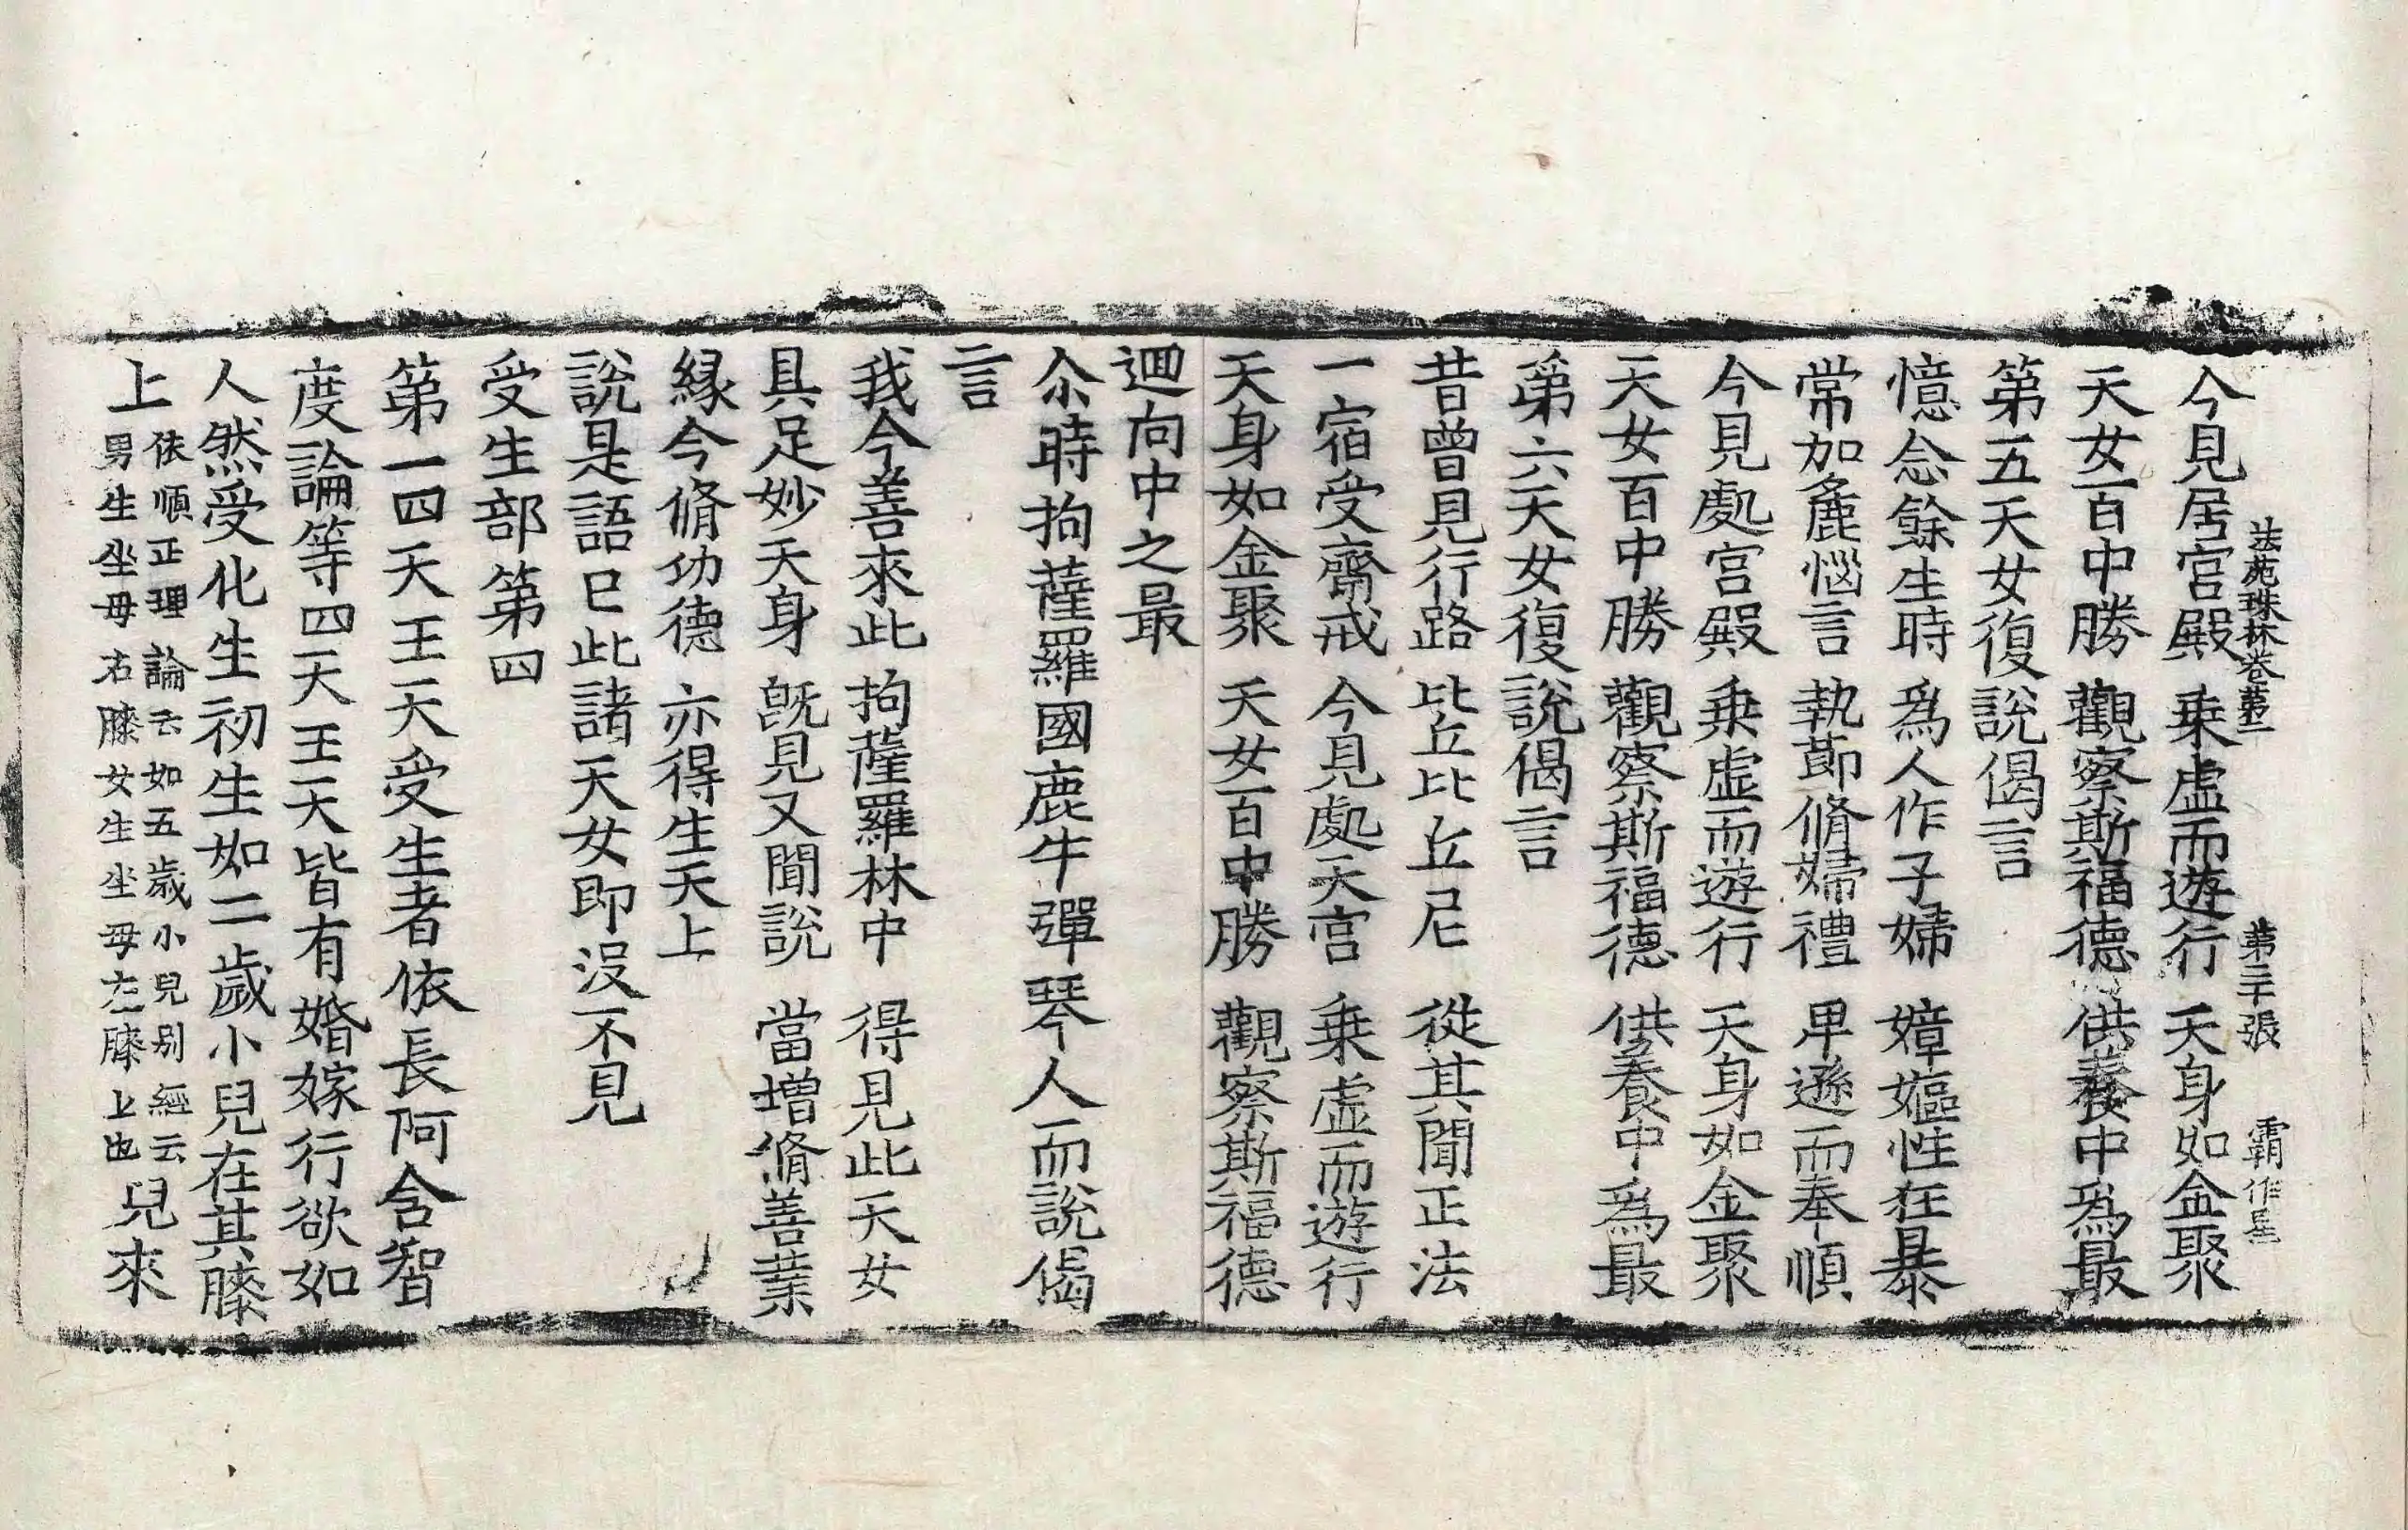 法苑珠林卷第二 第三十張 覇作星
今見居宮殿 乗虛而遊行 天身如金聚
天女百中勝 觀察斯福德 供養中爲最
第五天女復說偈言
憶念餘生時 爲人作子婦 嫜嫗性狂暴
常加麁惱言 執節脩婦禮 卑遜而奉順
今見處宮殿 乗虛而遊行 天身如金聚
天女百中勝 觀察斯福德 供養中爲最
第六天女復說偈言
昔曾見行路 比丘比丘尼 從其聞正法
一宿受齋戒 今見處天宮 乗虛而遊行
天身如金聚 天女百中勝 觀察斯福德
迴向中之最
尒時拘薩羅國鹿牛彈琴人而說偈
言
我今善來此 拘薩羅林中 得見此天女
具足妙天身 旣見又聞說 當增脩善業
緣今脩功德 亦得生天上
說是語已此諸天女即沒不見
受生部第四
第一四天王天受生者依長阿含智
度論等四天王天皆有婚嫁行欲如
人然受化生初生如二歲小兒在其膝
上依順正理論云如五歲小兒别經云男生坐母右膝女生坐母左膝上也兒來